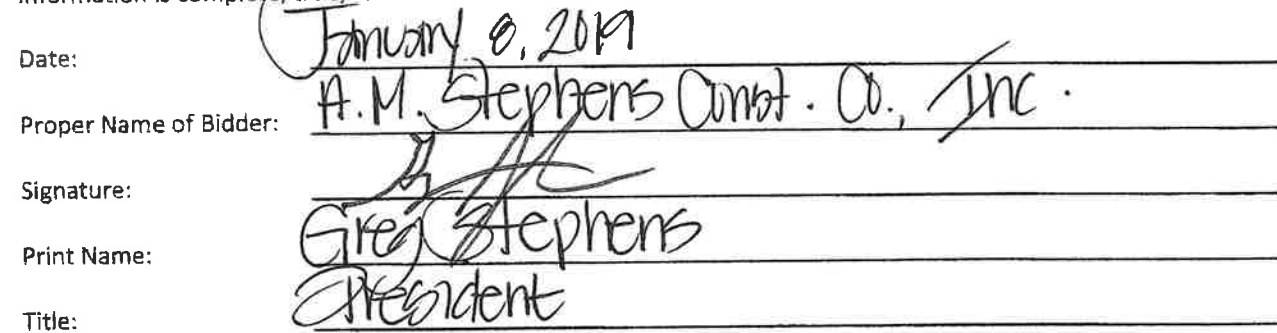 Information is complete,
Date: January 8, 2019
Proper Name of Bidder: A.M. Stephens Const. Co., Inc.
Signature:
Print Name: Greg Stephens
Title: President